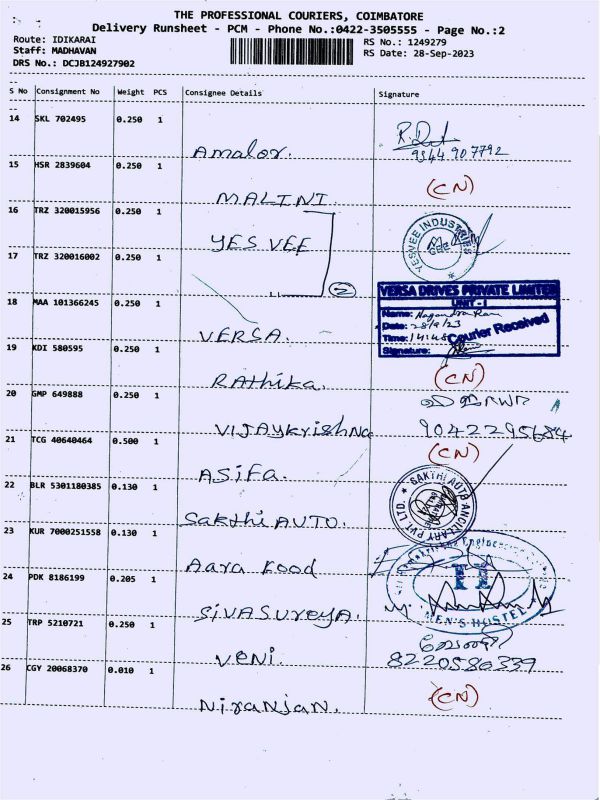 THE PROFESSIONAL COURIERS, COIMBATORE
Delivery Runsheet - PCM - Phone No.:0422-3505555 - Page No.:2
Route: IDIKARAI
RS No.: 1249279
Staff: MADHAVAN
RS Date: 28-Sep-2023
DRS No.: DCJB124927902
S No Consignment No Weight PCS Consignee Details Signature
14 SKL 702495 0.250 1
Amalor. 9344 907792
15 HSR 2839604 0.250 1
MALINI (CN)
16 TRZ 320015956 0.250 1
YES VEE YESVEE INDUSTRIES
17 TRZ 320016002 0.250 1
VERSA DRIVES PRIVATE LIMITED
UNIT - I
18 MAA 101366245 0.250 1
Name:
Date: 28/9/23
VERSA. Time: 14:48 Courier Received
Signature:
19 KDI 580595 0.250 1
RAthika. (CN)
20 GMP 649888 0.250 1
VIJAYkrishNa 9042295684
21 TCG 40640464 0.500 1
ASiFa. (CN)
22 BLR 5301180385 0.130 1
SAKTHI AUTO ANCILLARY PVT LTD.
SakthiAUTO.
23 KUR 7000251558 0.130 1
Aara Food
24 PDK 8186199 0.205 1
SiVASureya. MEN'S HOSTEL
25 TRP 5210721 0.250 1
Veni. 8220580339
26 CGY 20068370 0.010 1
NiranJaN. (CN)